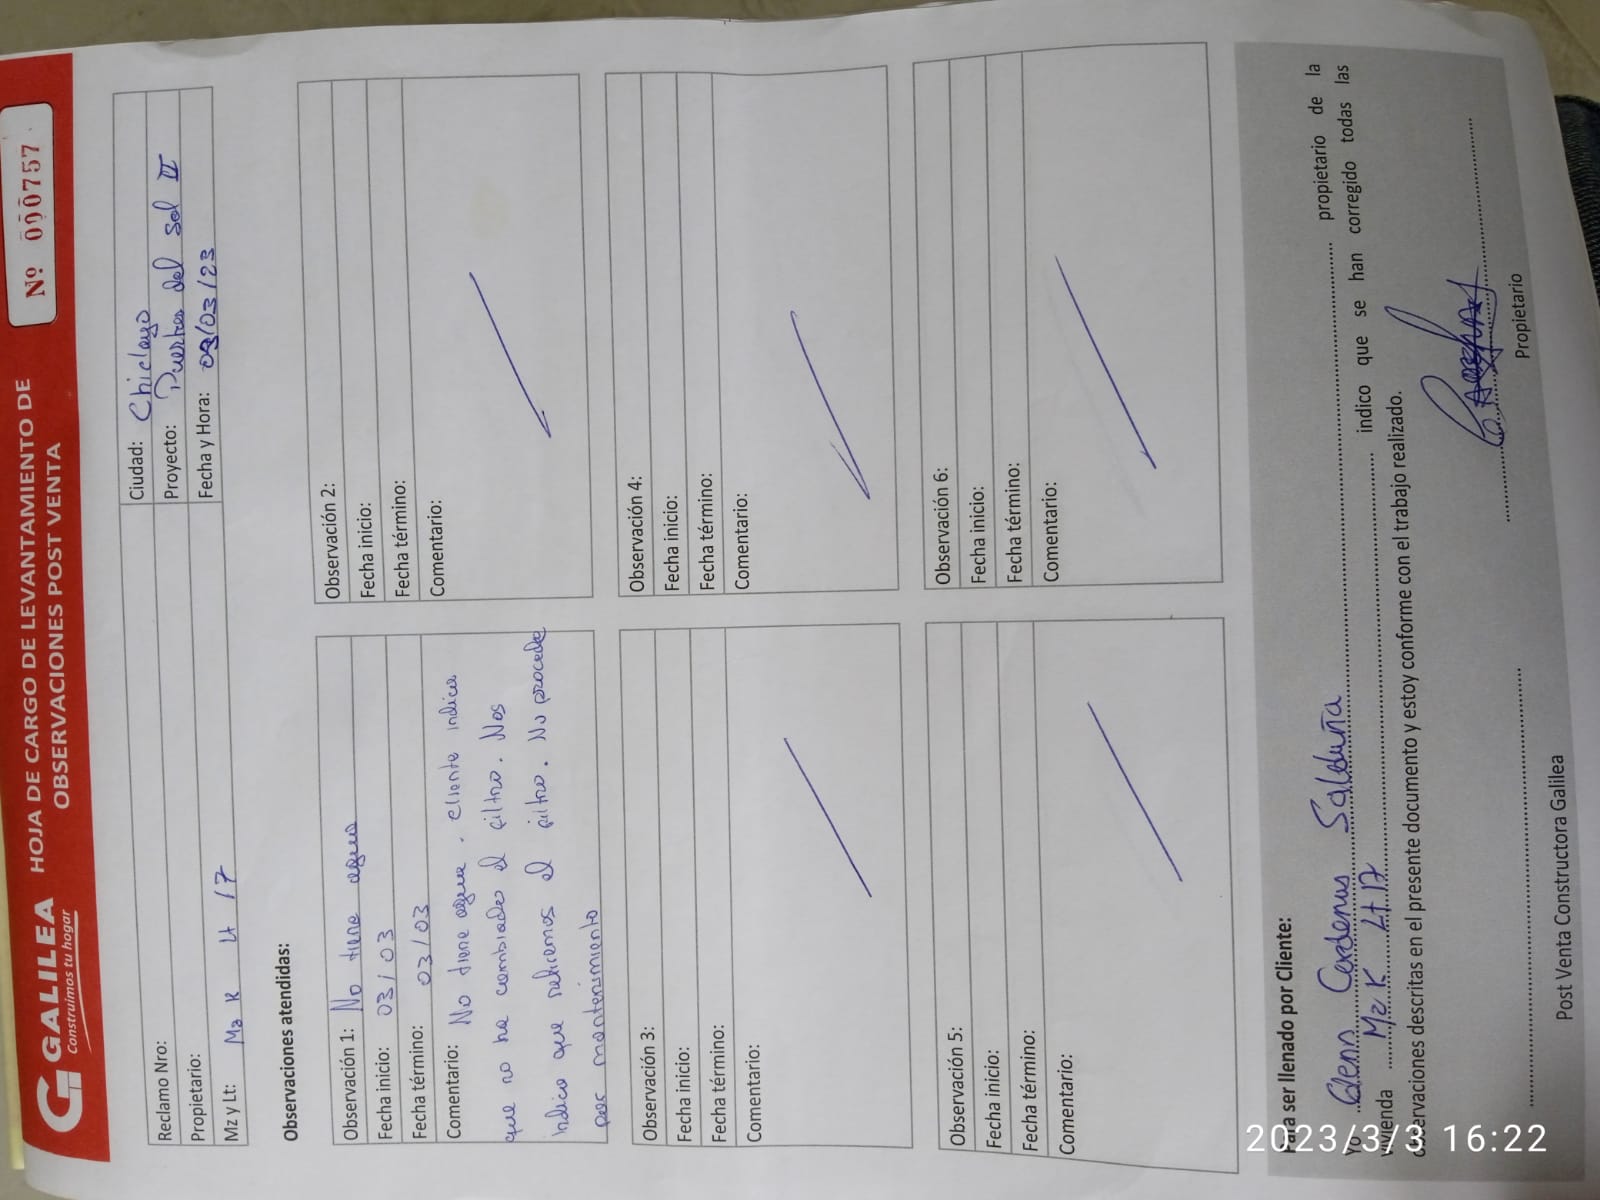 GALILEA
Construimos tu hogar
HOJA DE CARGO DE LEVANTAMIENTO DE
OBSERVACIONES POST VENTA
Nº 000757
Reclamo Nro:
Propietario:
Mz y Lt: Mz K Lt 17
Ciudad: Chiclayo
Proyecto: Puertas del Sol II
Fecha y Hora: 03/03/23
Observaciones atendidas:
Observación 1: No tiene agua
Fecha inicio: 03/03
Fecha término: 03/03
Comentario: No tiene agua. cliente indica
que no ha cambiado el filtro. Nos
Indica que retiremos el filtro. No procede
por mantenimiento
Observación 2:
Fecha inicio:
Fecha término:
Comentario:
Observación 3:
Fecha inicio:
Fecha término:
Comentario:
Observación 4:
Fecha inicio:
Fecha término:
Comentario:
Observación 5:
Fecha inicio:
Fecha término:
Comentario:
Observación 6:
Fecha inicio:
Fecha término:
Comentario:
Para ser llenado por Cliente:
Yo Glenn Cardenas Salduña propietario de la
vivienda Mz K Lt 17 indico que se han corregido todas las
observaciones descritas en el presente documento y estoy conforme con el trabajo realizado.
Post Venta Constructora Galilea
Propietario
2023/3/3 16:22